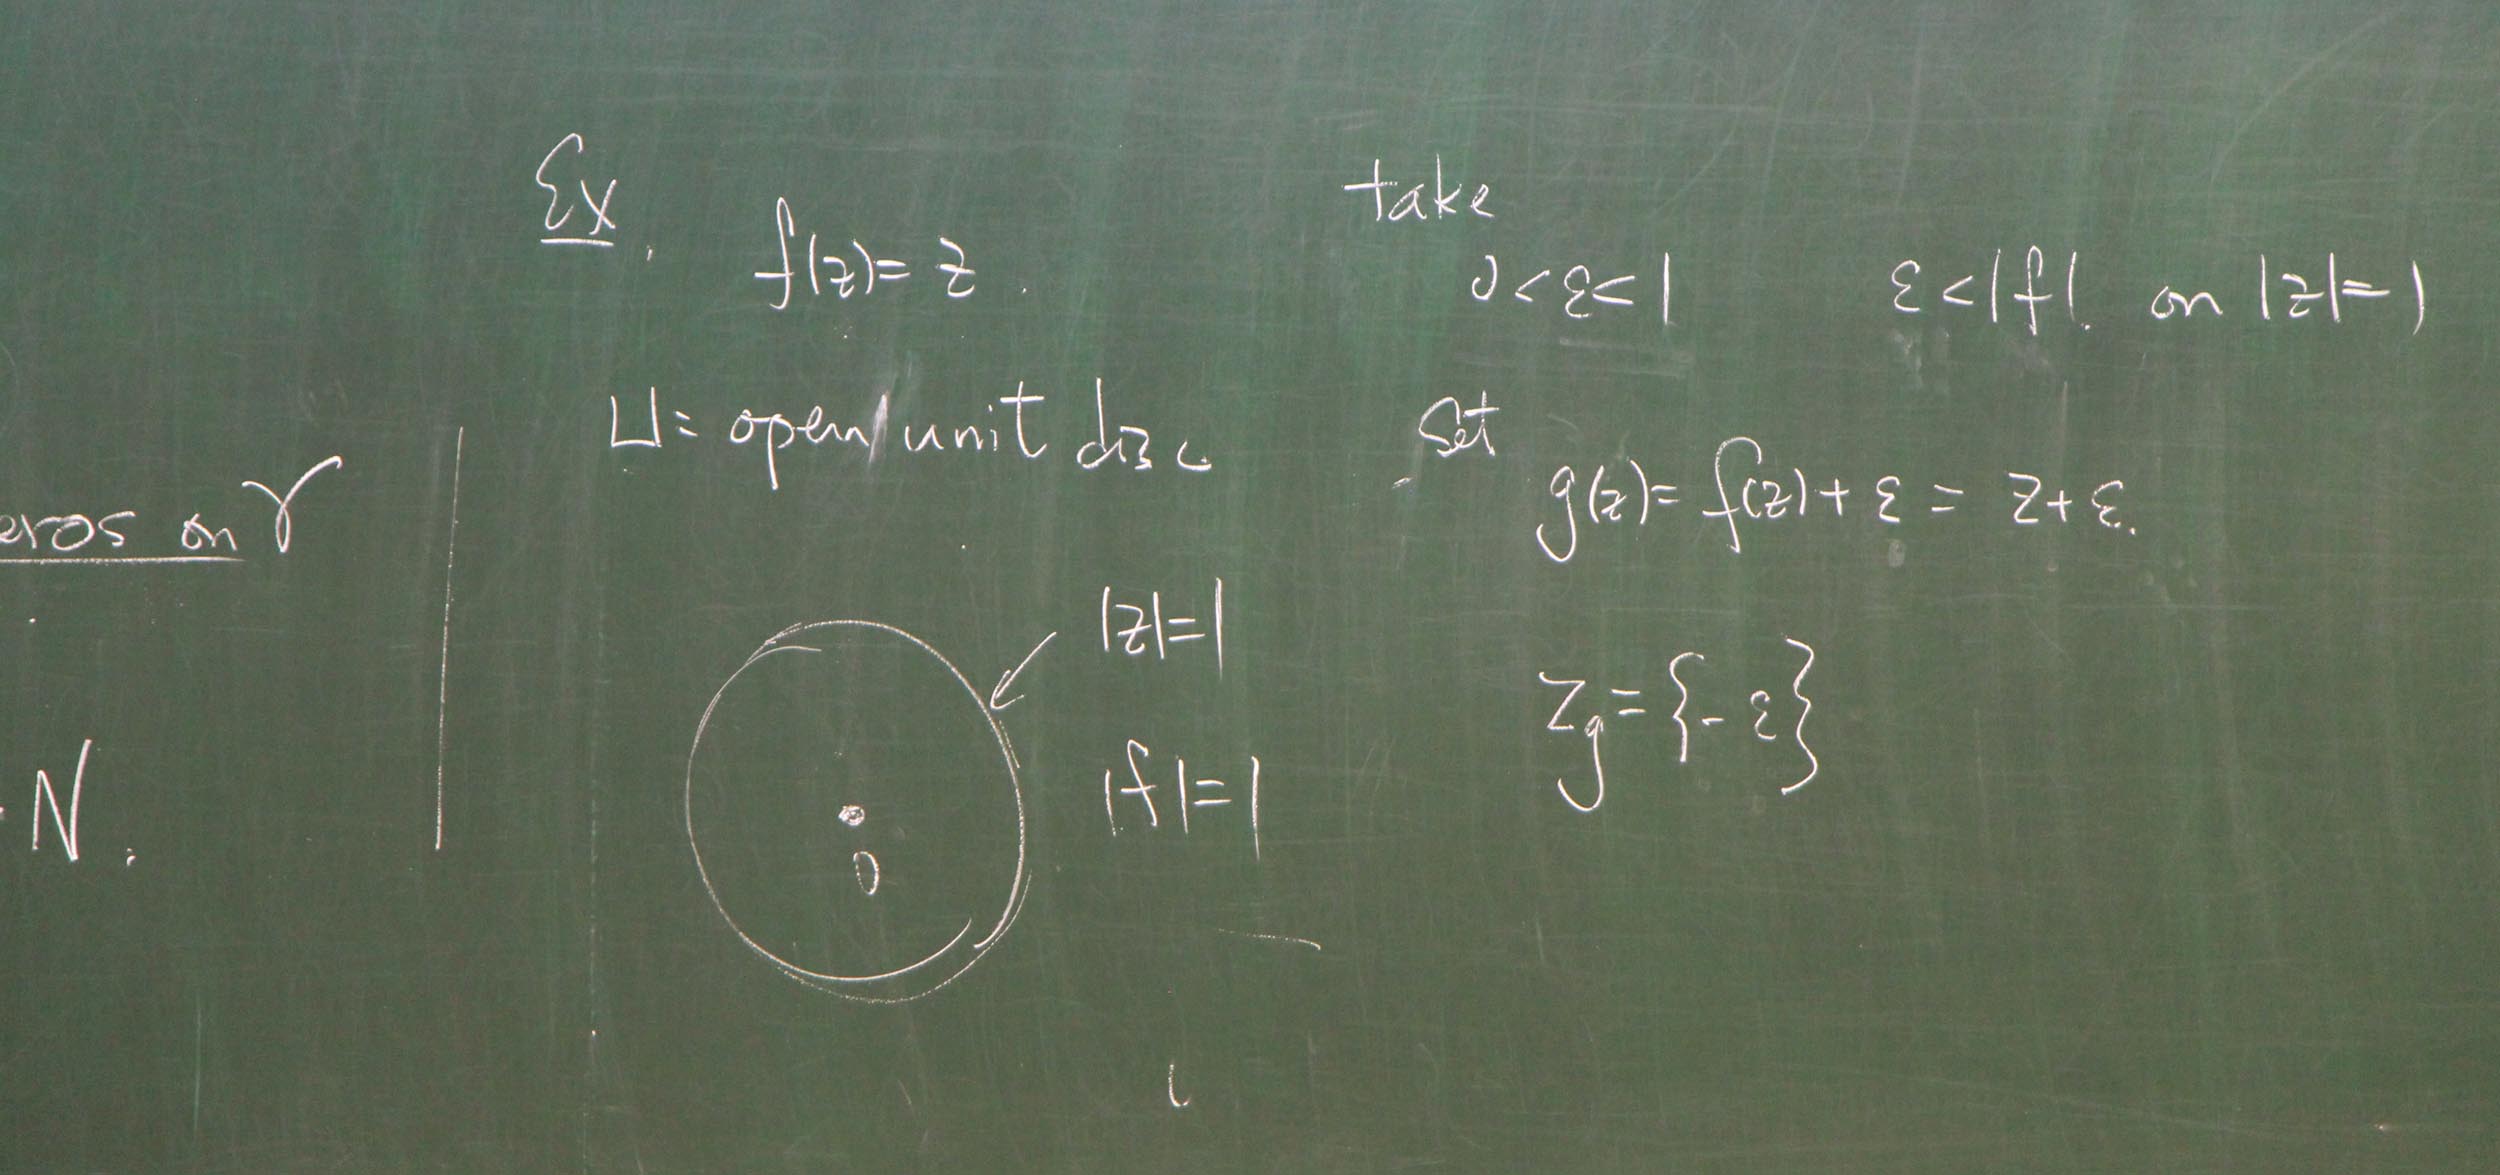 eros on γ
N.
Ex.
f(z) = z.
U = open unit disc
|z| = 1
|f| = 1
0
take
0 < ε < 1 ε < |f|. on |z| = 1
Set
g(z) = f(z) + ε = z + ε.
Z_g = {-ε}